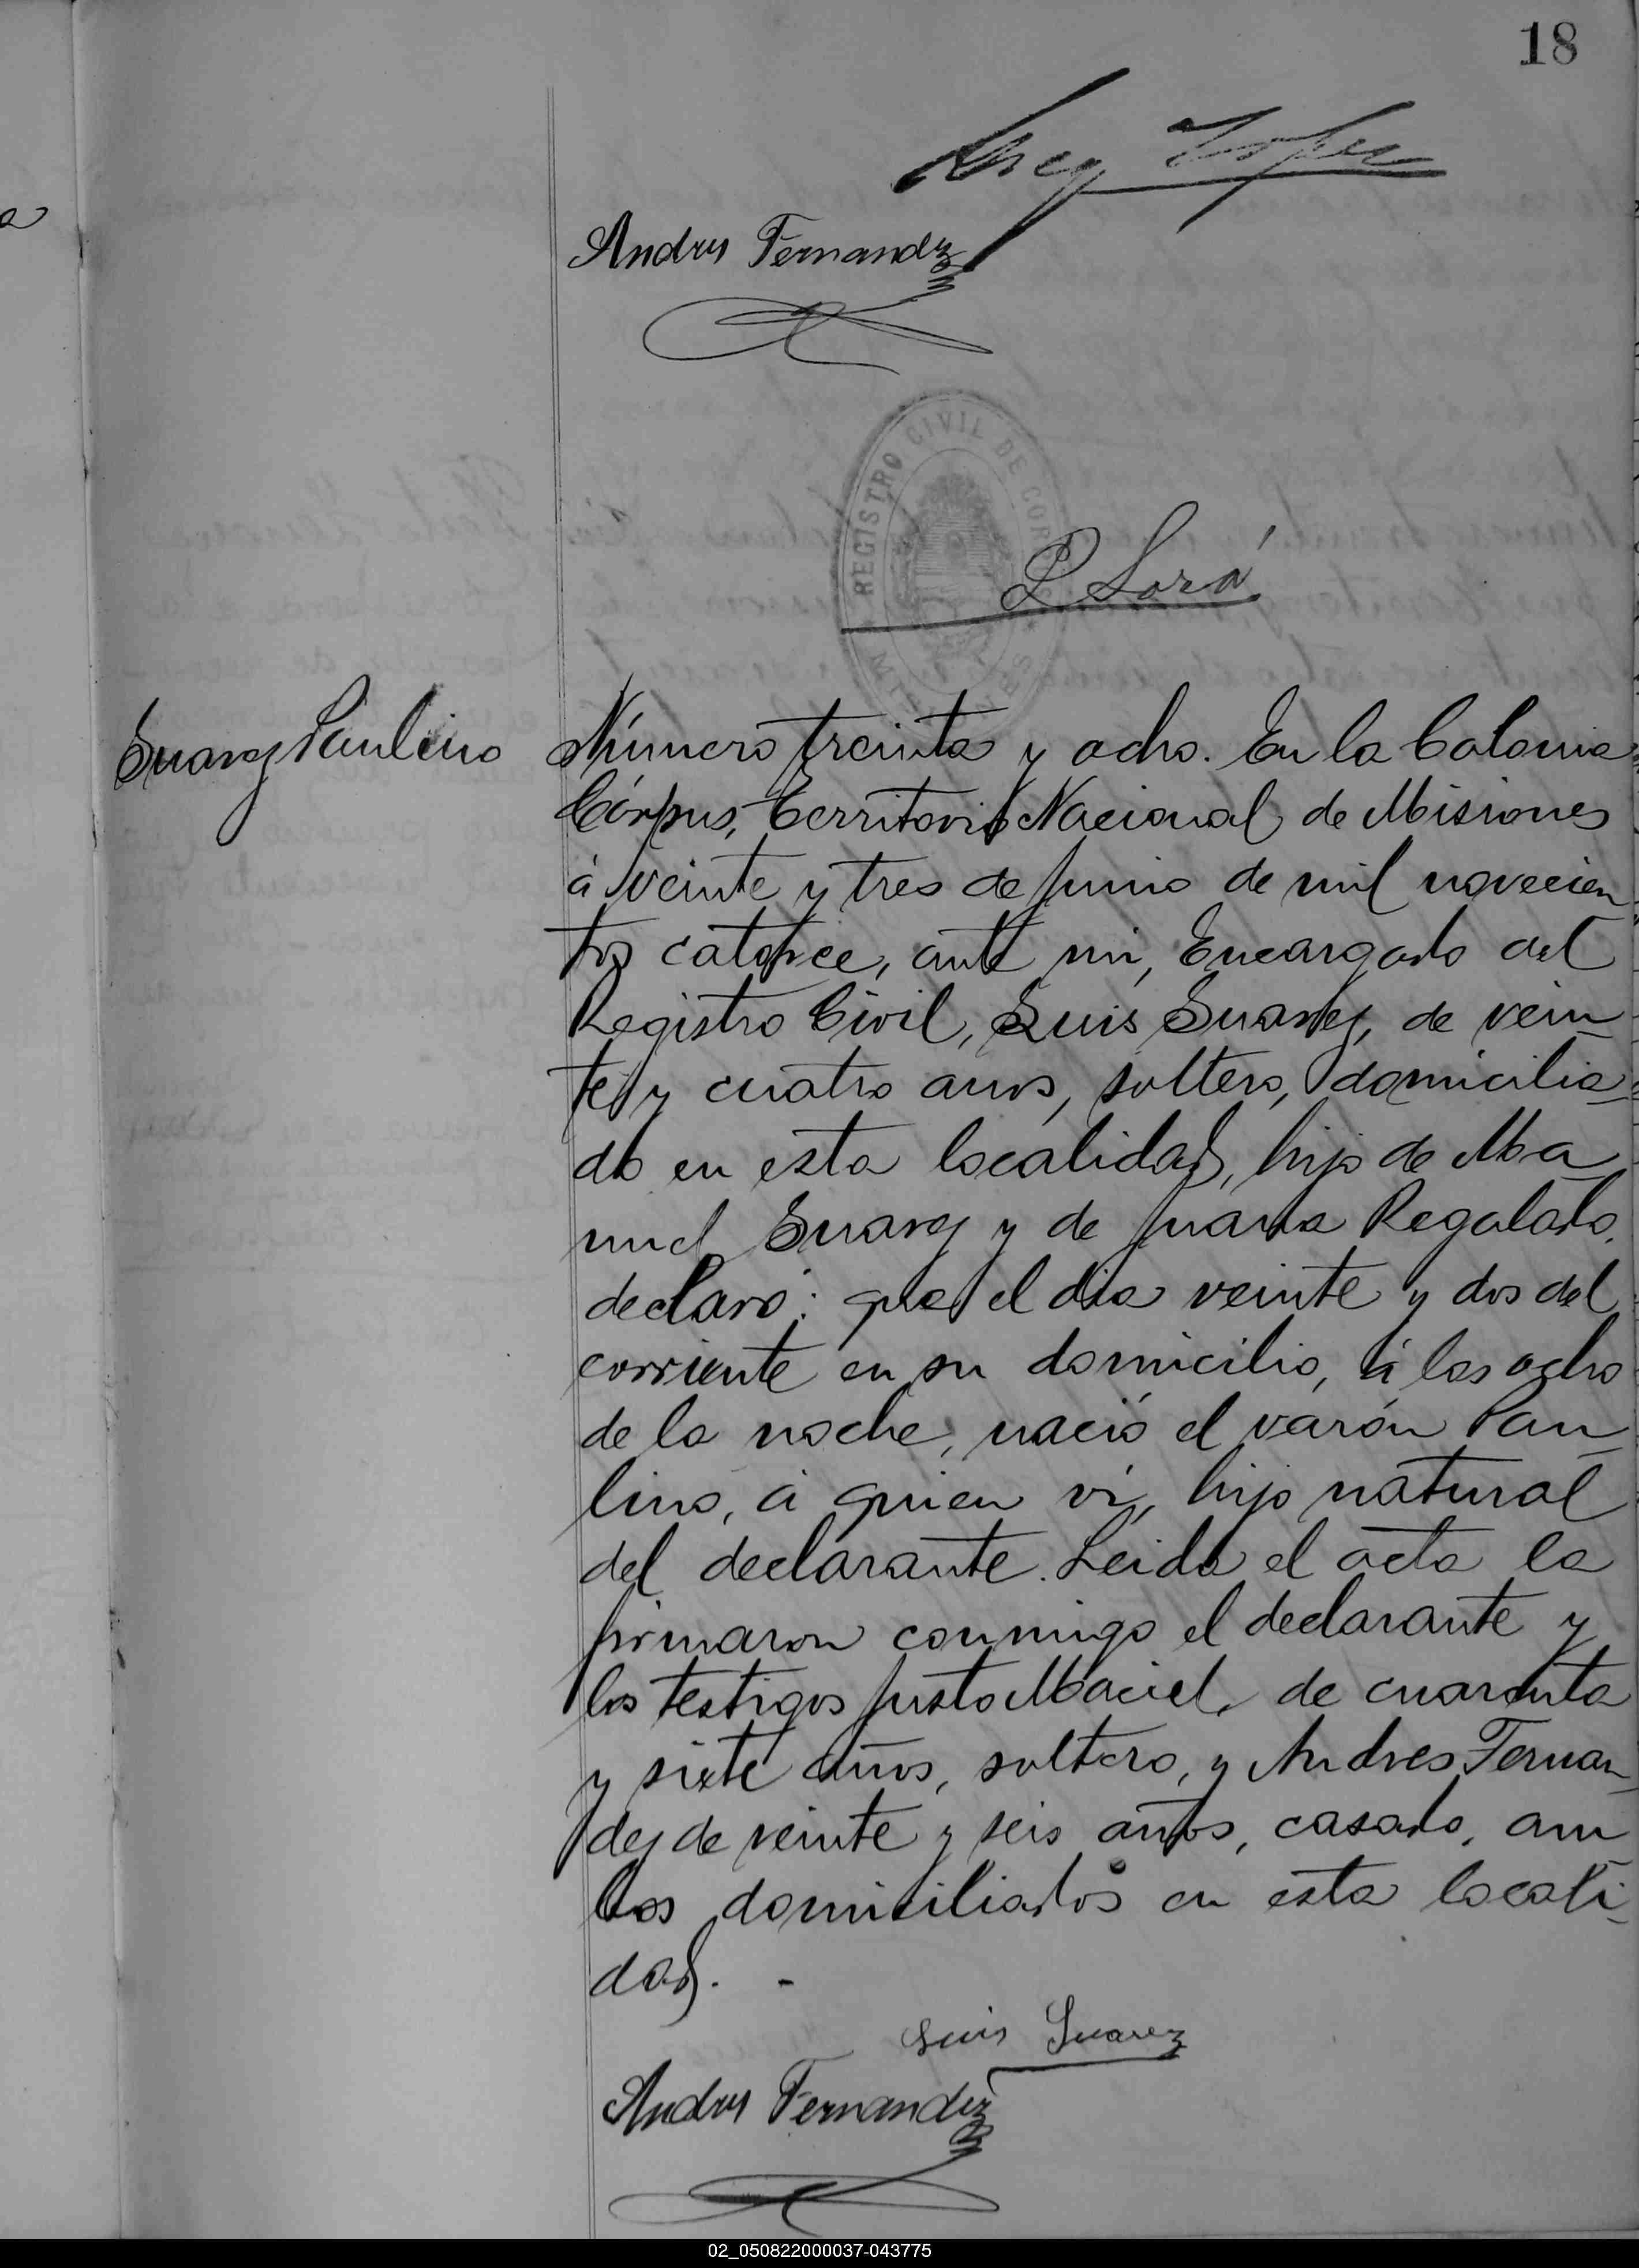 18
Lopez
Andres Fernandez
REGISTRO CIVIL DE COR
MISIONES
P Sorá
Suarez Paulino
Número treinta y ocho. En la Colonia
Córpus, Territorio Nacional de Misiones
á veinte y tres de Junio de mil novecien
tos catorce, ante mi, Encargado del
Registro Civil, Luis Suarez, de vein
te y cuatro anos, soltero, domicilia
do en esta localidad, hijo de Ma
nuel Suarez y de Juana Regalado,
declaró: que el dia veinte y dos del
corriente en su domicilio, á las ocho
de la noche, nació el varón Pau
lino, á quien ví, hijo natural
del declarante. Leida el acta la
firmaron conmigo el declarante y
los testigos Justo Maciel, de cuarenta
y siete años, soltero, y Andres Fernan
dez de veinte y seis años, casado, am
bos domiciliados en esta locali
dad. -
Luis Suarez
Andres Fernandez
02_050822000037-043775